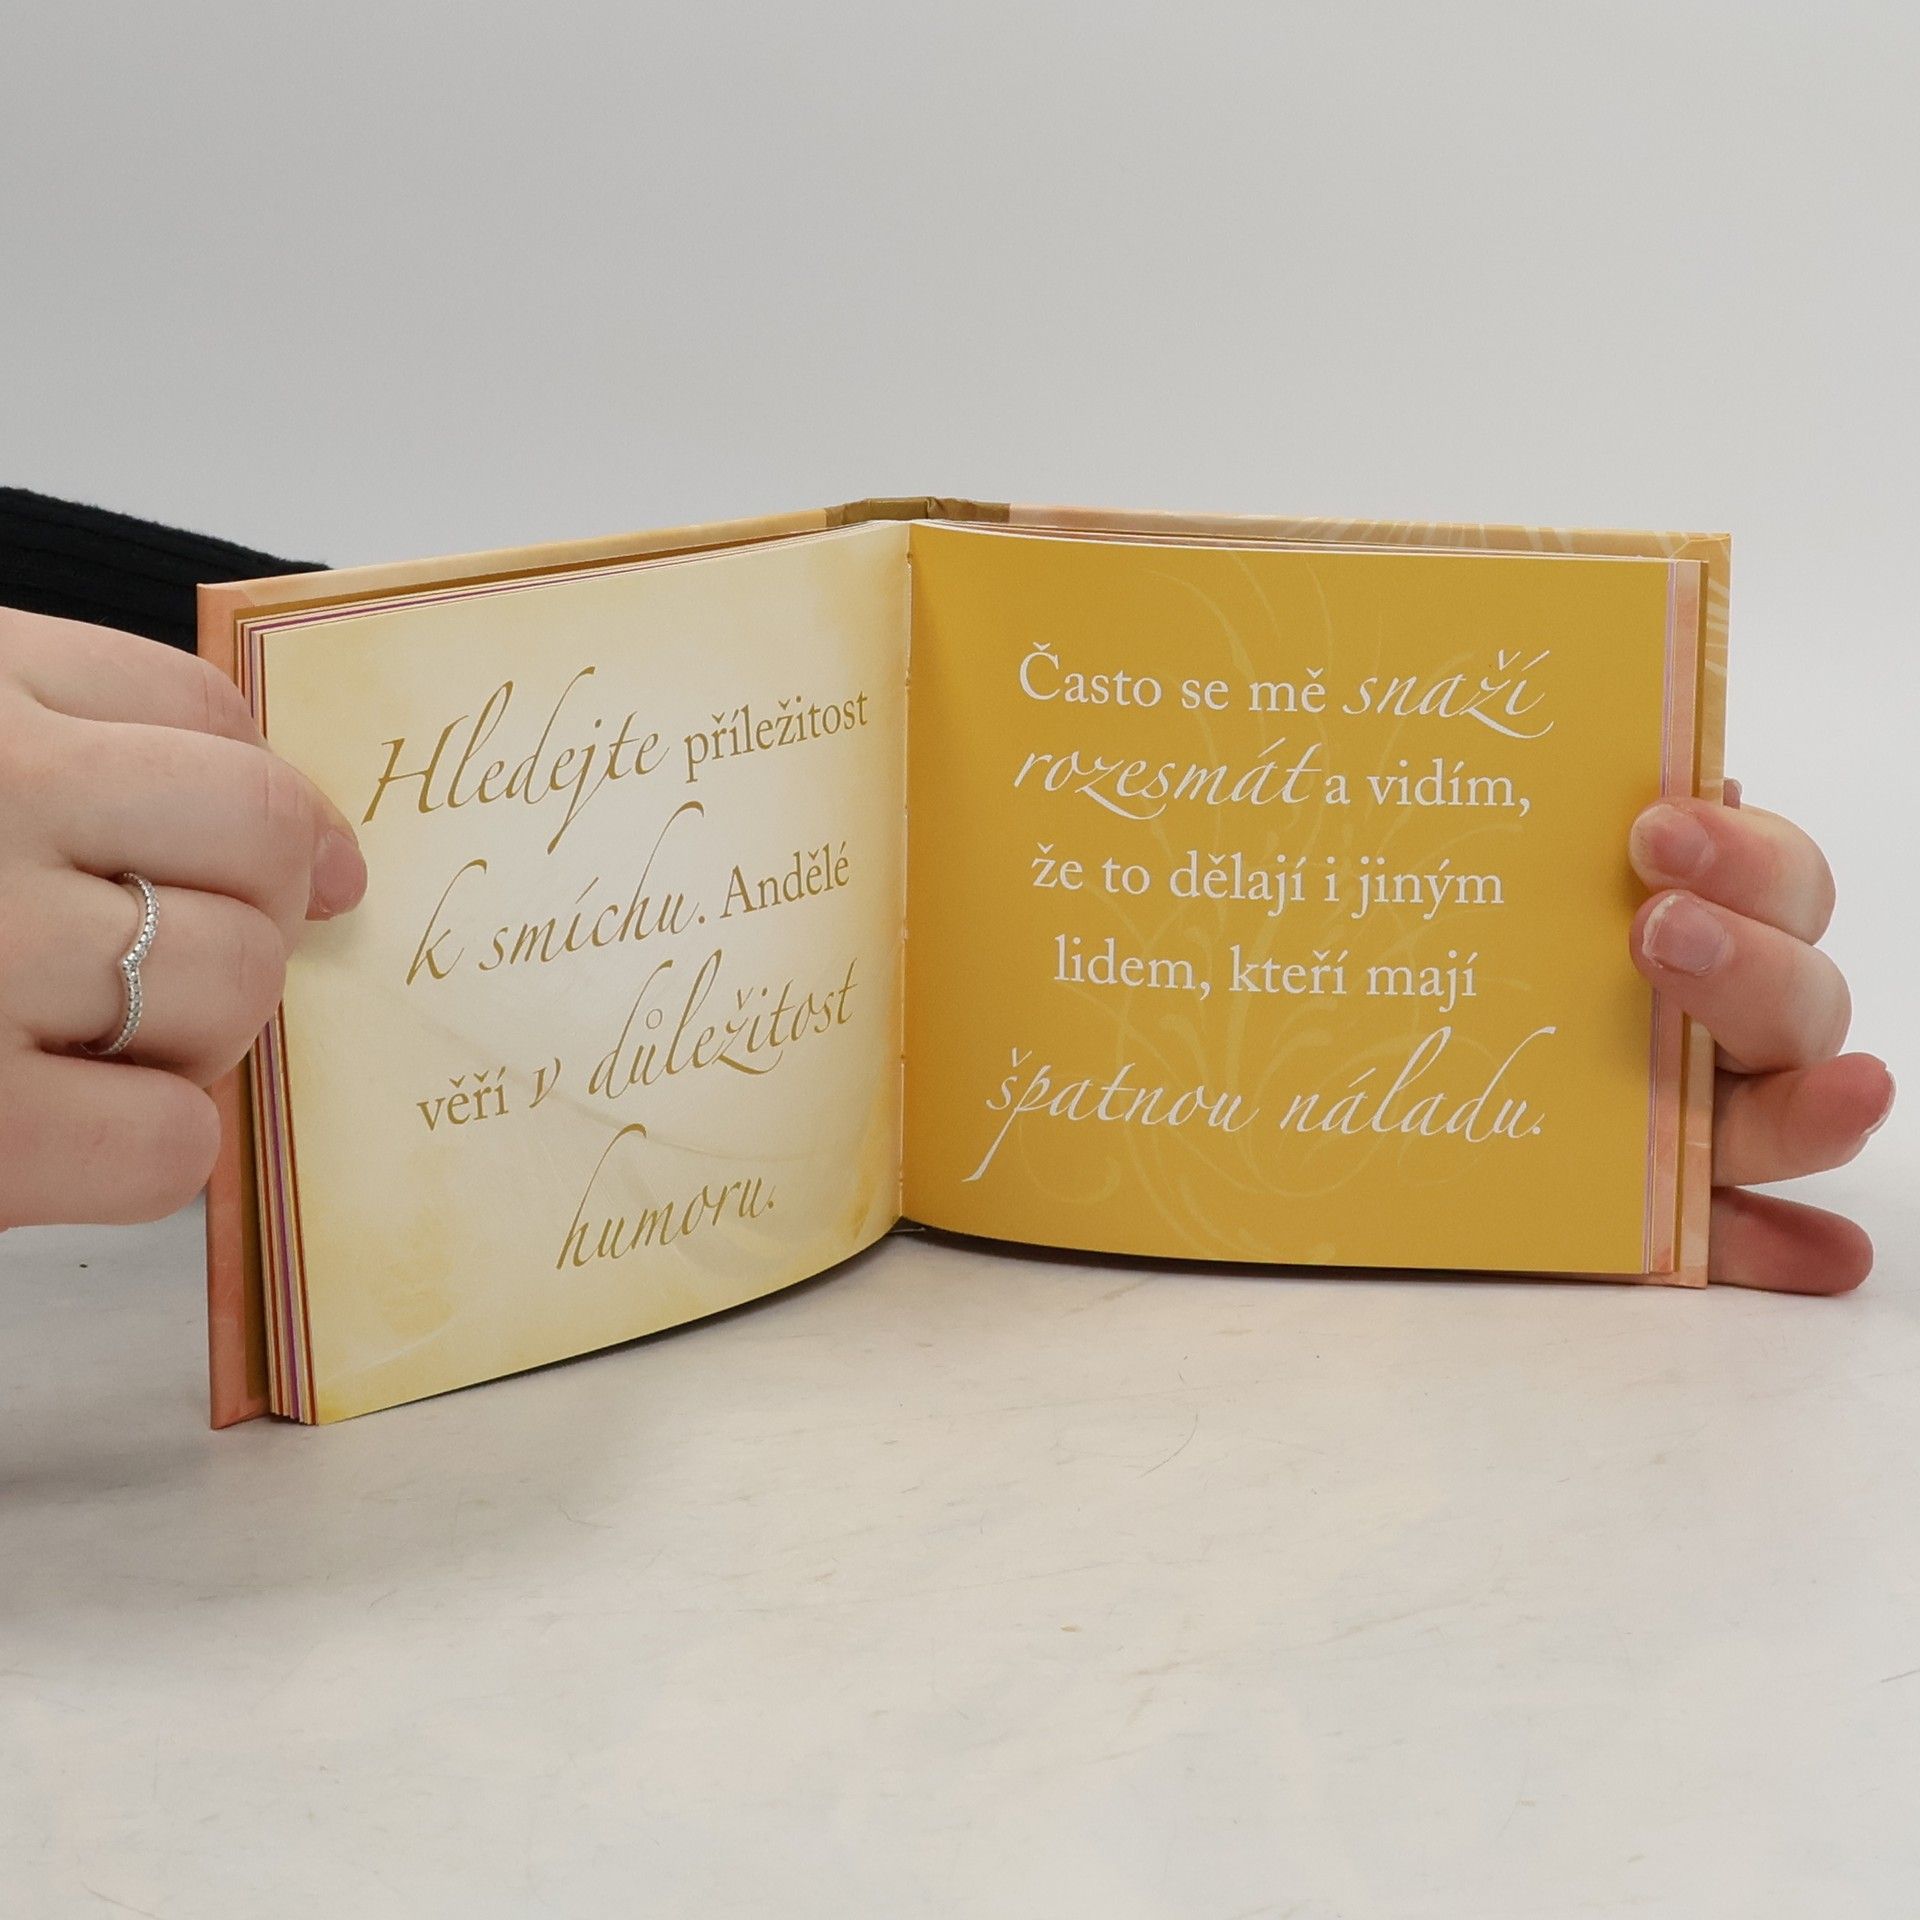 Hledejte příležitost
k smíchu. Andělé
věří v důležitost
humoru.
Často se mě snaží
rozesmát a vidím,
že to dělají i jiným
lidem, kteří mají
špatnou náladu.